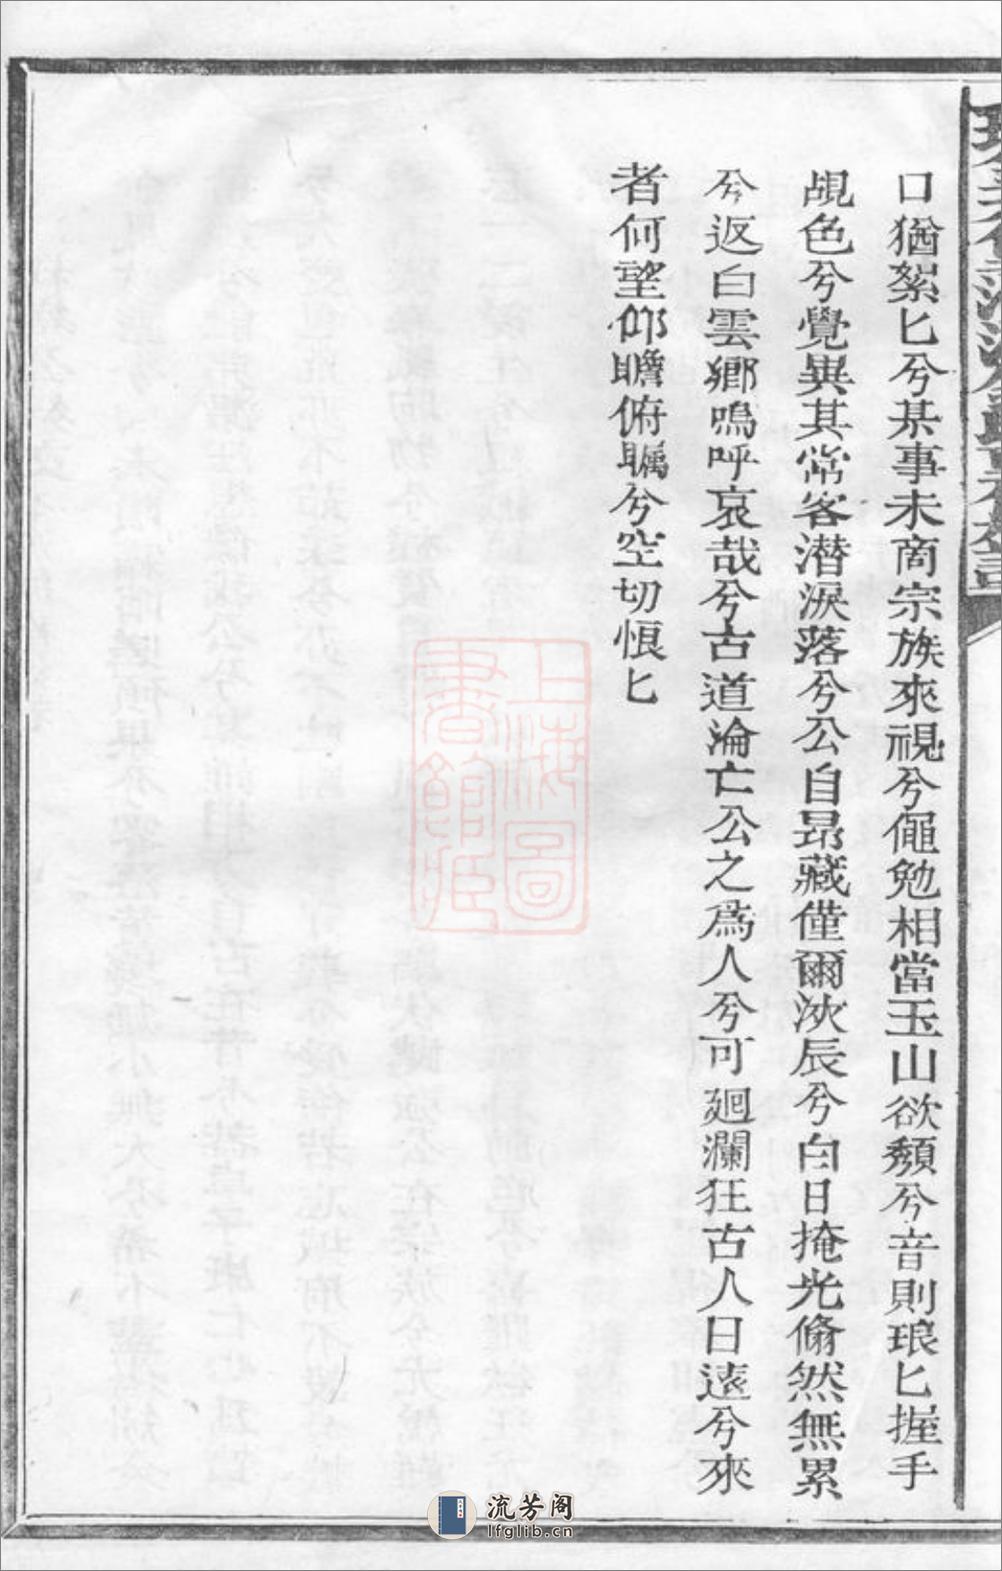 口猶絮匕兮某事未商宗族來視兮僶勉相當玉山欲頽兮音則琅匕握手
覘色兮覺異其常客潜淚落兮公自昂藏僅爾浹辰兮白日掩光翛然無累
兮返白雲鄉嗚呼哀哉兮古道淪亡公之爲人兮可廻瀾狂古人日遠兮來
者何望仰瞻俯矚兮空切悢匕
上海圖書館藏
流芳阁
lfglib.cn